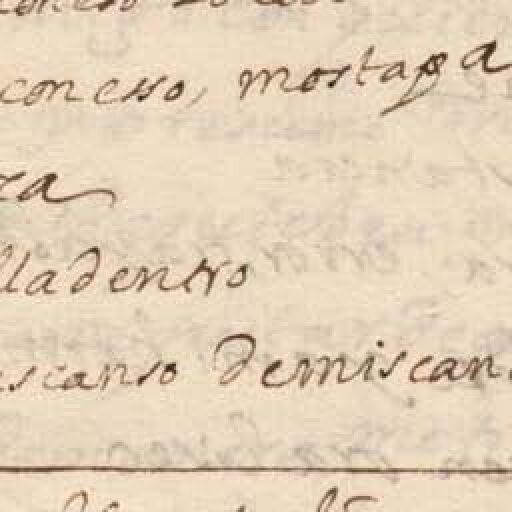 con esso, mostaça
za
lladentro
escanso demiscan